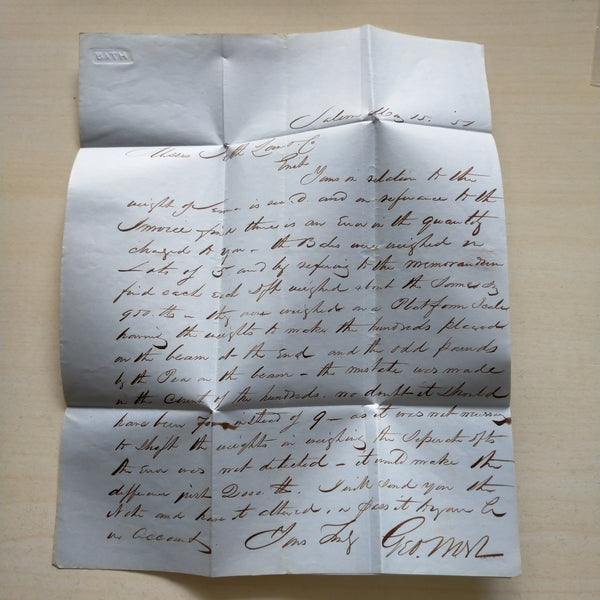 BATH
Salem May 15. '51
Messrs Low & Co
Gent
Yours in relation to the
weight of is rec'd and on reference to the
Invoice find there is an Error in the quantity
charged to you - the Bales were weighed in
Lots of 5 and by refering to the memorandum
find each each weighed about the Same say
950. lbs - they were weighed on a Platform Scale
having the weights to make the hundreds placed
on the beam at the End and the odd pounds
by the Pea on the beam - the mistake was made
in the Count of the hundreds. no doubt it should
have been instead of 9 - as it was not necessary
to Shift the weights in weighing the Seperate
the Error was not detected - it would make the
difference just lb. I will Send you the
Note and have it altered, or pass it to your Cr
in account
Yours Truly Geo. West